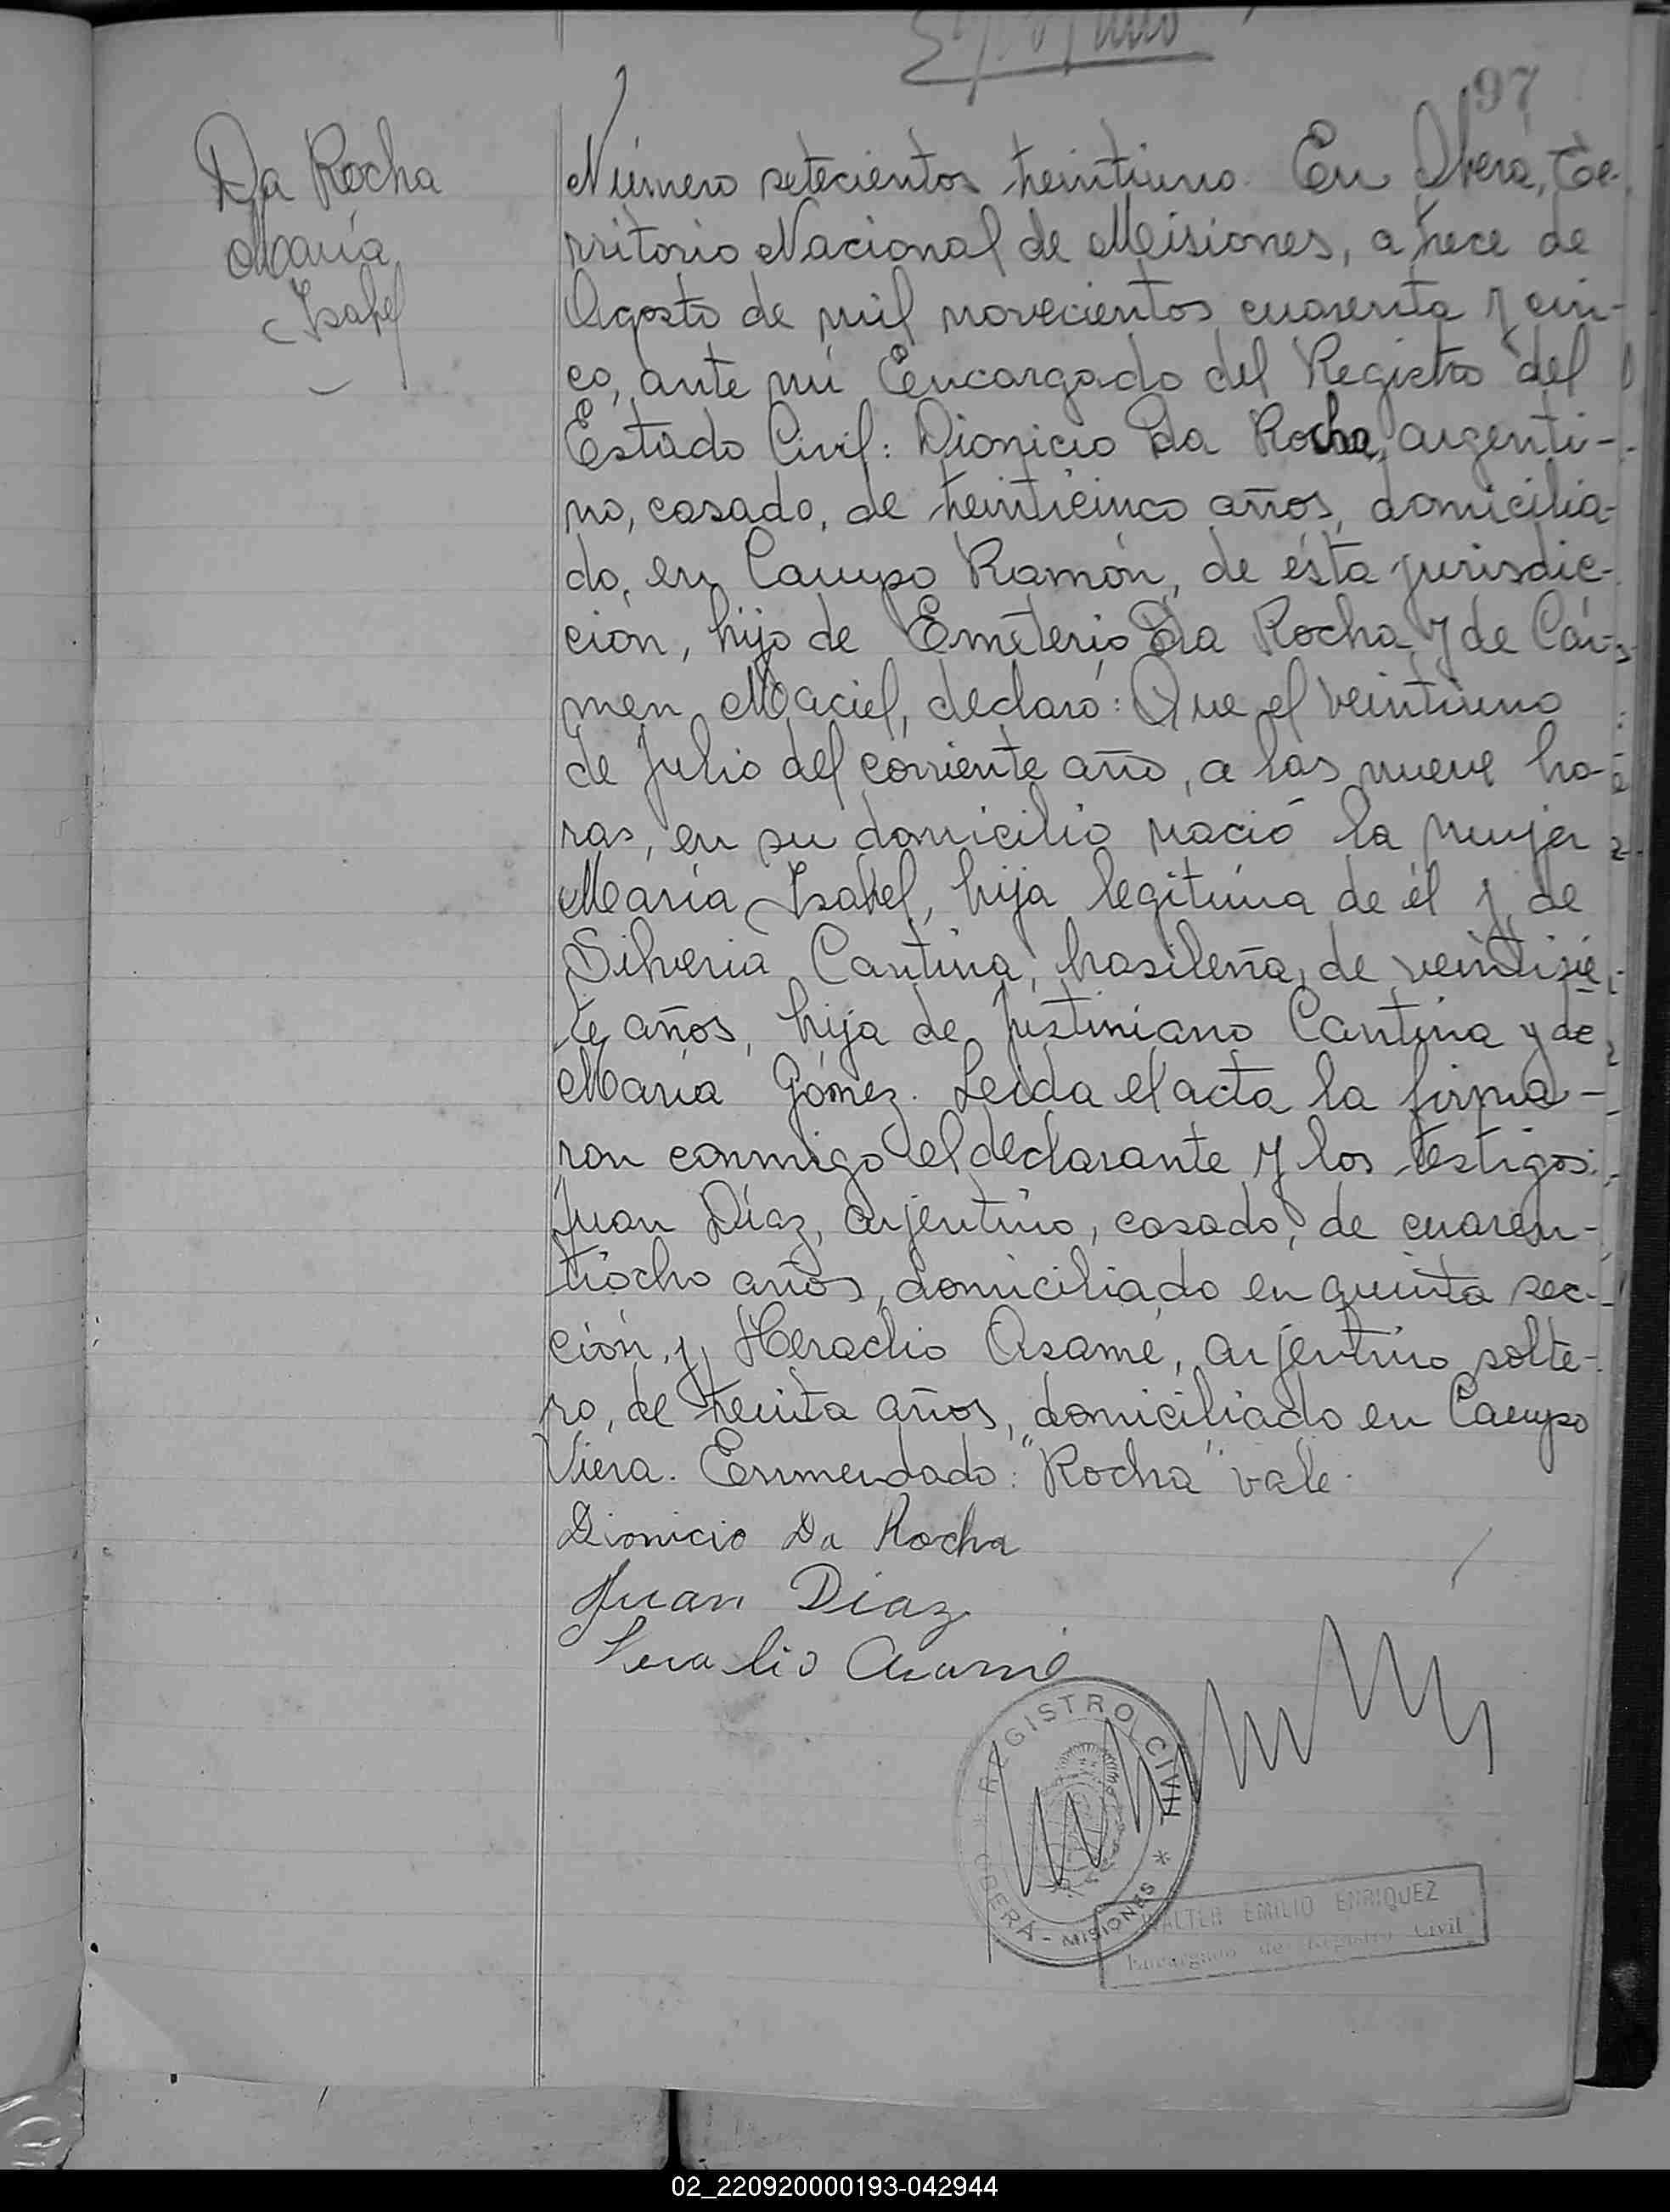 97
Da Rocha
María
Isabel
Número setecientos treintiuno. En Oberá, Te-
rritorio Nacional de Misiones, a trece de
Agosto de mil novecientos cuarenta y cin-
co, ante mí Encargado del Registro del
Estado Civil: Dionicio Da Rocha, argenti-
no, casado, de treinticinco años, domicilia-
do, en Campo Ramón, de ésta jurisdic-
ción, hijo de Emeterio Da Rocha y de Cár-
men Maciel, declaró: Que el veintiuno
de Julio del corriente año, a las nueve ho-
ras, en su domicilio nació la mujer
María Isabel, hija legítima de él y de
Silveria Cantina, brasileña, de veintisie-
te años, hija de Justiniano Cantina y de
María Gómez. Leida el acta la firma-
ron conmigo el declarante y los testigos:
Juan Díaz, arjentino, casado, de cuaren-
tiocho años, domiciliado en quinta sec-
ción, y Heraclio Asamé, arjentino solte-
ro, de treinta años, domiciliado en Campo
Viera. Enmendado: "Rocha" vale.
Dionicio Da Rocha
Juan Diaz
Asamé
REGISTRO CIVIL
OBERÁ - MISIONES
WALTER EMILIO ENRIQUEZ
Encargado de Registro Civil
02_220920000193-042944